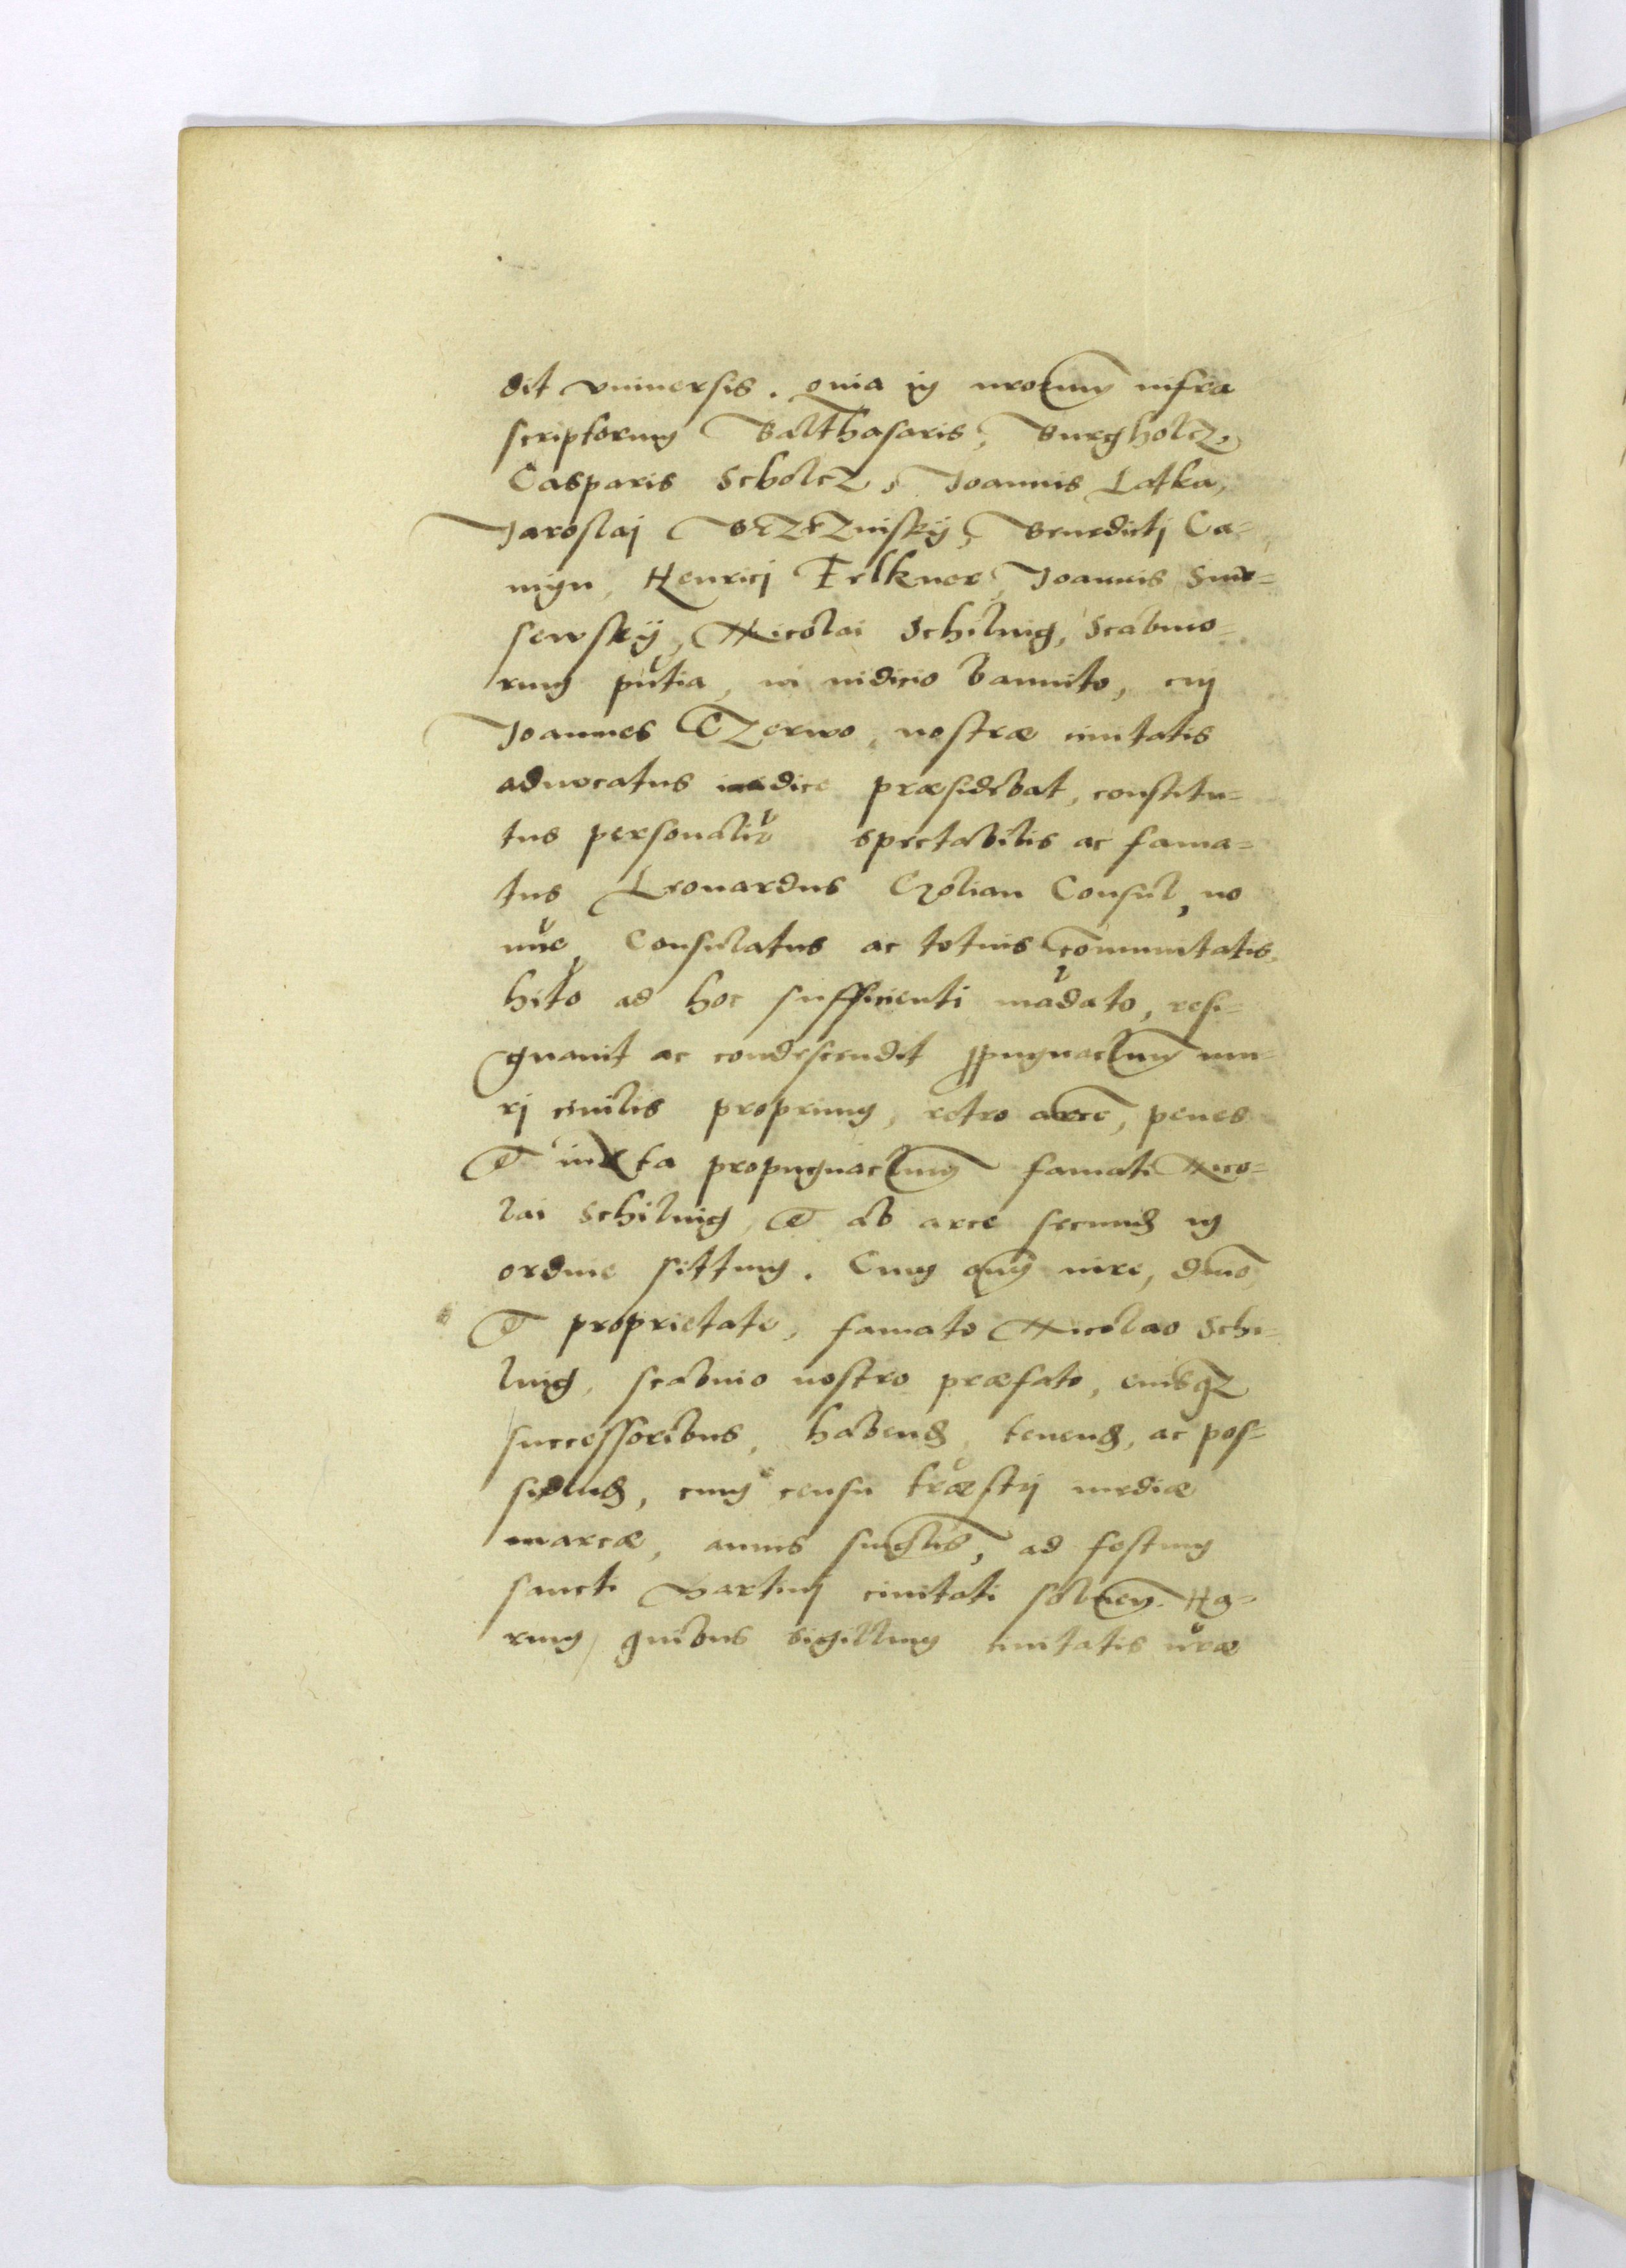 dit vniuersis. Quia in nrorum infra
scriptorum Balthasaris, Burgholcz,
Casparis Scholcz, Joannis Latka,
Jaroslaj Bczeznisky, Benedictj Ca=
mÿn, Henricj Felkner, Joannis Sme=
sewskÿ, Nicolai Schilnig, Scabino=
rum pñtia, in iudicio bannito, cuj
Joannes Czerwo, nostræ ciuitatis
aduocatus iudice præsidebat, constitu=
tus personalit spectabilis ac fama=
tus Leonardus Czolian Consul, no
mĩe, Consulatus ac totius cõmunitatis,
hito ad hoc sufficienti mãdato, resi=
gnauit ac condescendit ꝓpugnaclum mu=
rj ciuilis proprium, retro arcē, penes
& iuxta propugnaclum famati Nico=
lai Schilnig, & ab arce secund in
ordine sittum. Cum omĩ iure, dnio,
& proprietate, famato Nicolao Schi=
lnig, scabino nostro præfato, eiusqz
successoribus, habend, tenend, ac pos=
sidend, cum censu træstÿ mediæ
marcæ, annis singlis, ad festum
sancti Martinj ciuitati soluen. Ha=
rum, quibus sigillum ciuitatis nræ